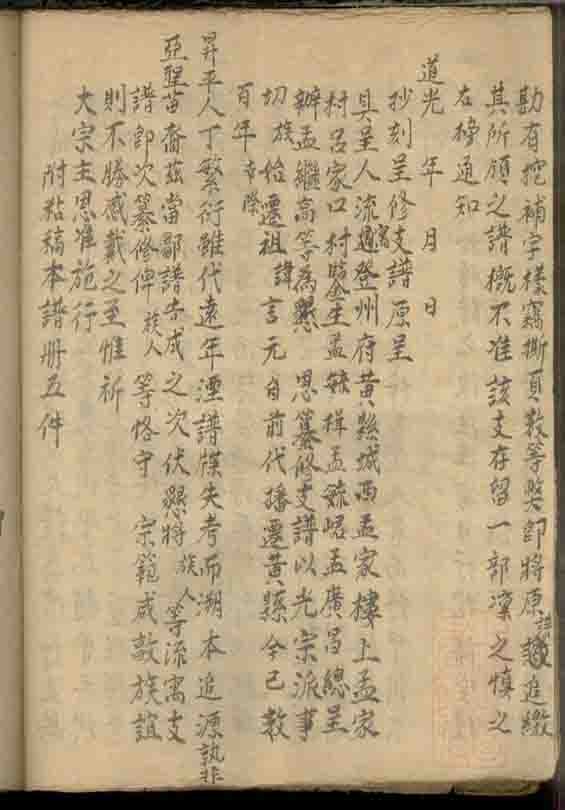 勘有挖補字樣竊撕頁數等獘即將原譜追繳
其所領之譜槪不准該支存留一部凜之愼之
右榜通知
道光 年 月 日
抄刻呈修支譜原呈
具呈人流寓登州府黃縣城西孟家樓上孟家
村呂家口村監生孟毓楫孟毓岷孟廣昌總呈
辦孟繼高等為懇 恩纂修支譜以光宗派事
切族始遷祖諱言元自前代播遷黃縣今已数
百年幸際
昇平人丁繁衍雖代遠年湮譜牒失考而溯本追源孰非
亞聖苗裔茲當鄒譜告成之次伏懇將族人等流寓支
譜即次纂修俾族人等恪守 宗範咸敦族誼
則不勝感戴之至惟祈
大宗主恩准施行
附粘稿本譜册五件